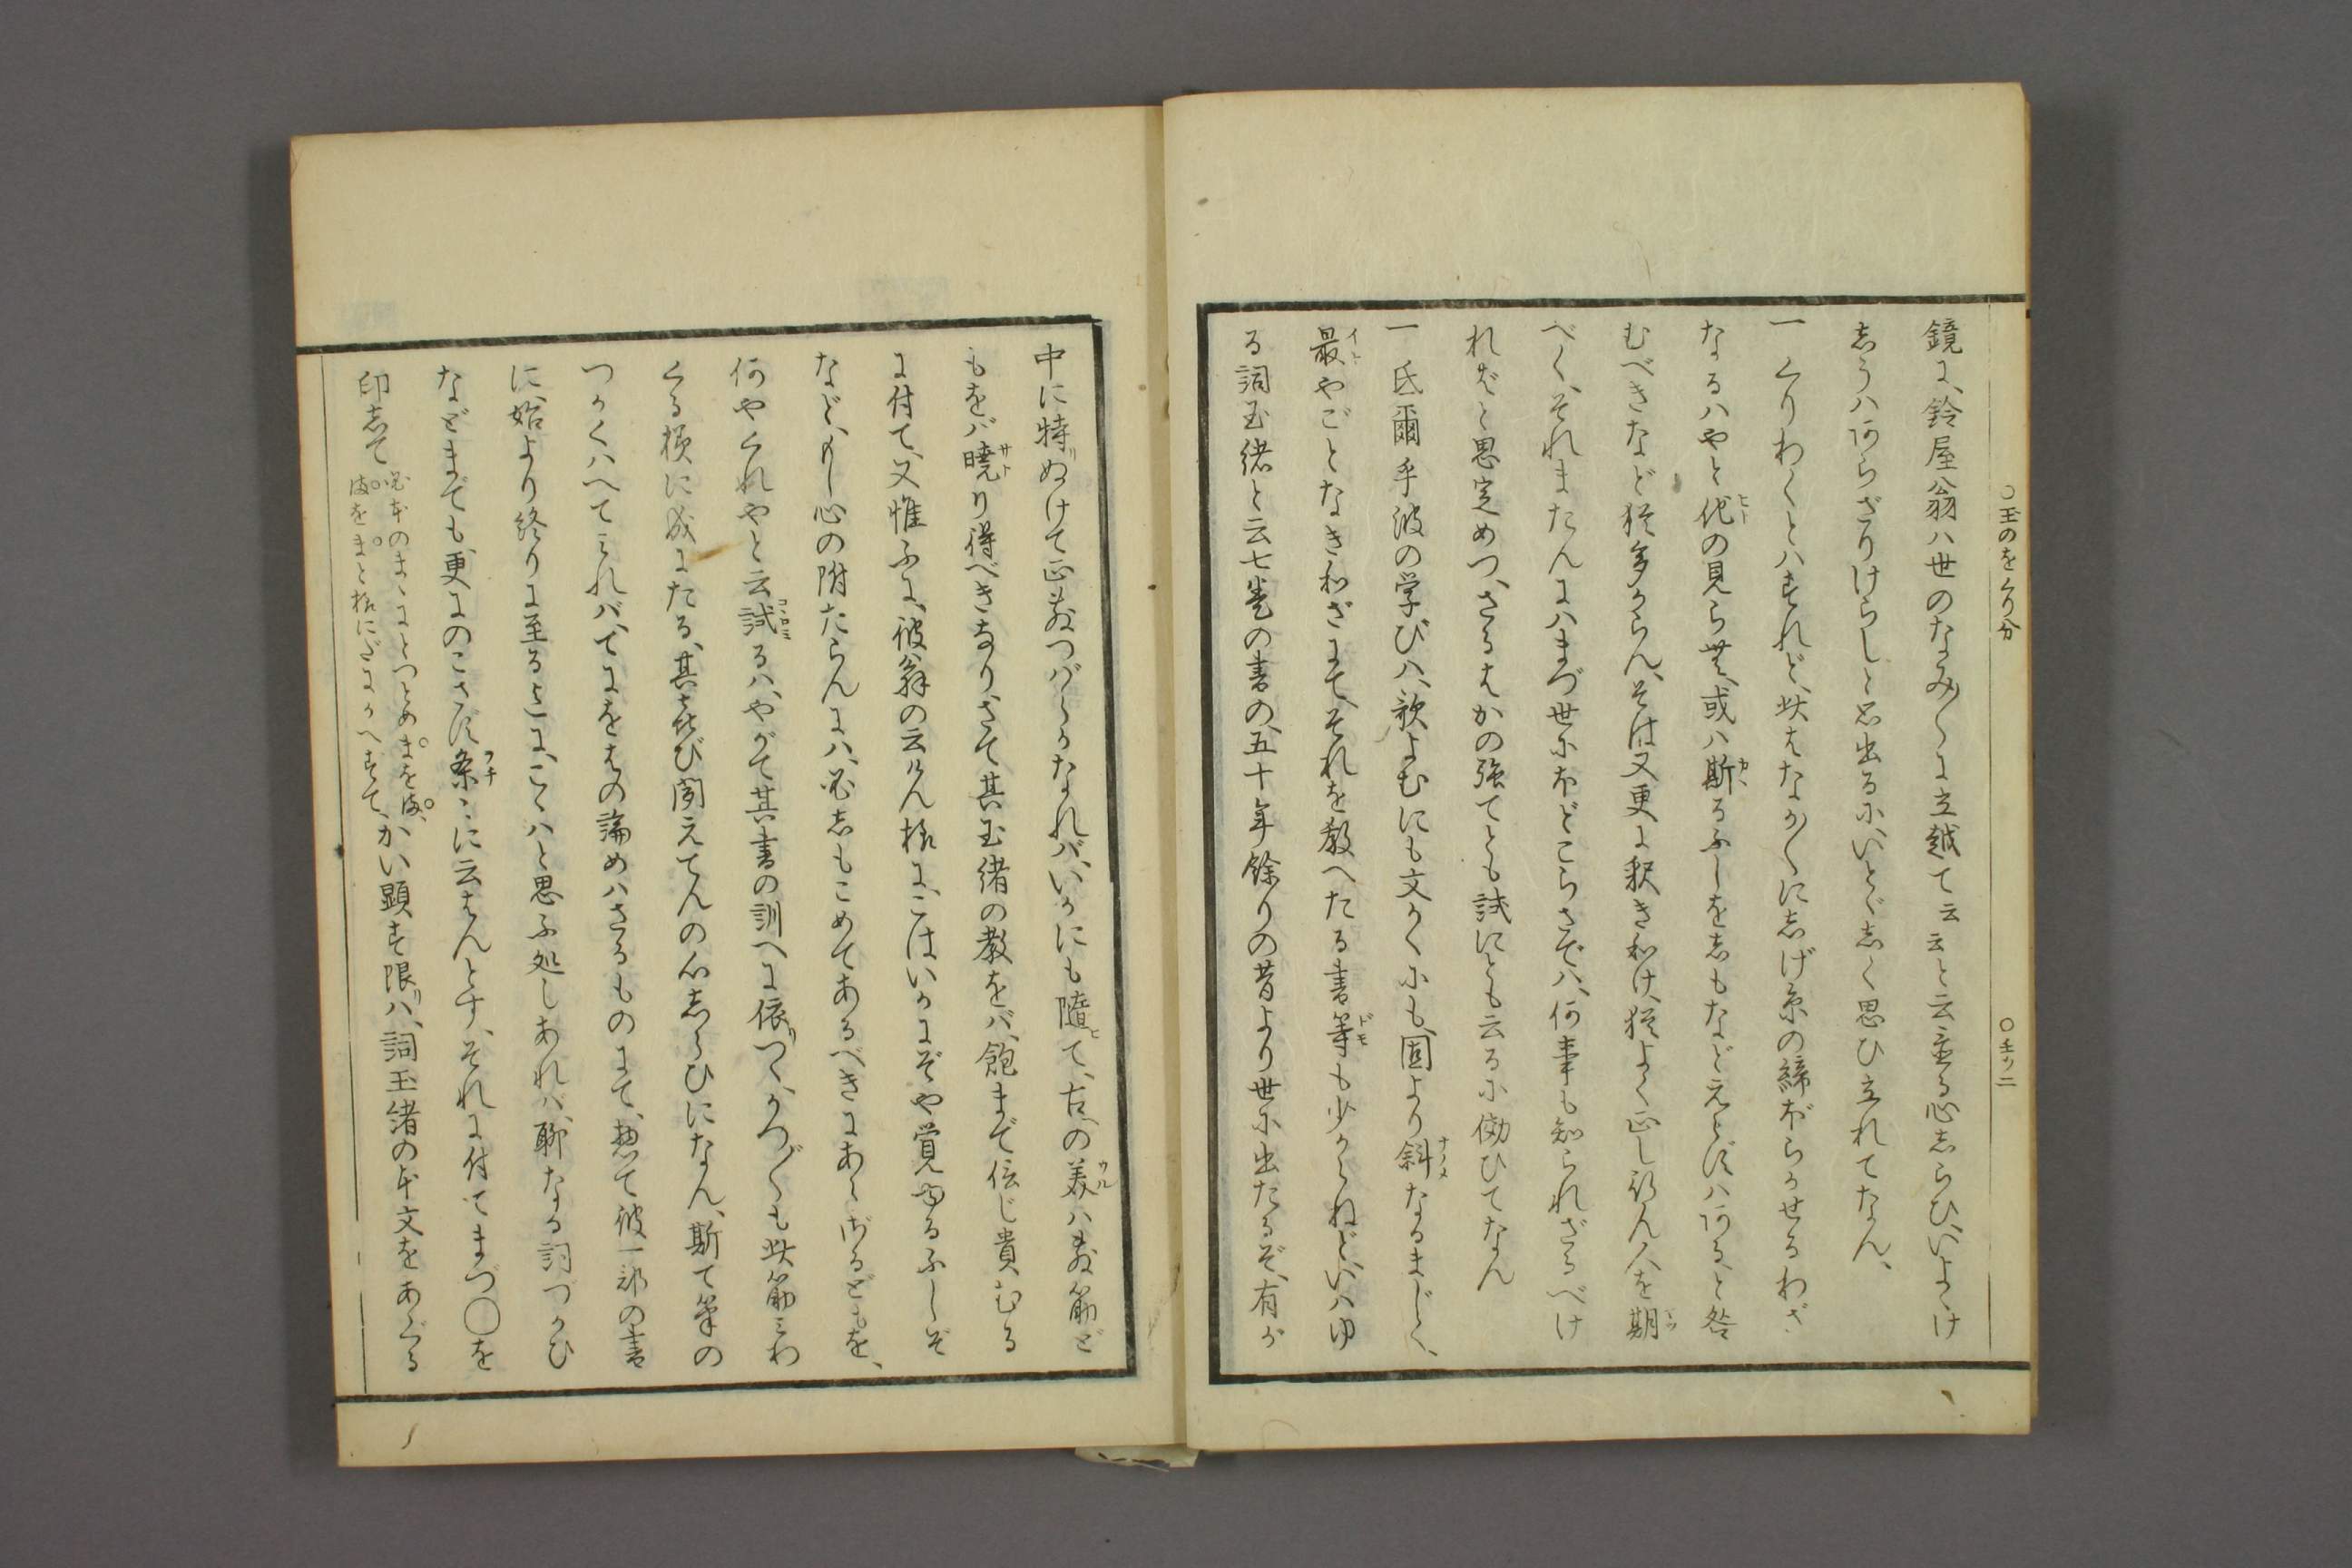 ○玉のをくり分
○壬ツ二
鏡に、鈴屋翁ハ世のなみ〳〵に立越て云云と云る心しらひ、いよゝけ
しうハあらざりけらしと思出るに、いとゞしく思ひ立れてなん、
一 くりわくとハすれど、此はなか〳〵にしげ糸の締ぼらかせるわざ
なるハやと他の見ら世、或ハ斯るふしをしもなどえとらずハあると咎
むべきなど猶多からん、そは又更に釈き和け、猶よく正し行ん人を期
べく、それまたんにハまづ世にほどこらさでハ、何事も知られざるべけ
れど〻思定めつ、さるはかの強てとも試にとも云るに傚ひてなん
一 氐爾乎波の学びハ、歌よむにも文かくにも、固より斜なるまじく、
最やごとなき和ざにて、それを教へたる書等も少からねど、いハゆ
る詞玉緒と云七巻の書の、五十年餘りの昔より世に出たるぞ、有が
中に特ぬけて正しきつばらかなれバ、いかにも隨て、古の美ハしき筋ど
もをバ曉り得べきなり、さて其玉緒の教をバ、飽まで信じ貴むる
に付て、又惟ふに、彼翁の云けん様に、こはいかにぞや覚ゆるふしぞ
など、もし心の附たらんにハ、必しもこめてあるべきにあらざるどもを、
何やくれやと云試るハ、やがて其書の訓へに依つゝ、かつ〴〵も此筋にわ
くる様に成にたる、其喜び聞えてんの心しらひになん、斯て筆の
つゝくハへてみれバ、てにをはの論めハさるものにて、惣て彼一部の書
に、始より終りに至るまに、こゝハと思ふ処しあれバ、聊なる詞づかひ
などまでも、更にのこさず条〻に云はんとす、それに付てまづ◯を
印して
必本のまゝにとつとめまを満、
満をまと様にだにかへすて、
かい顕す限ハ、詞玉緒の本文をあぐる